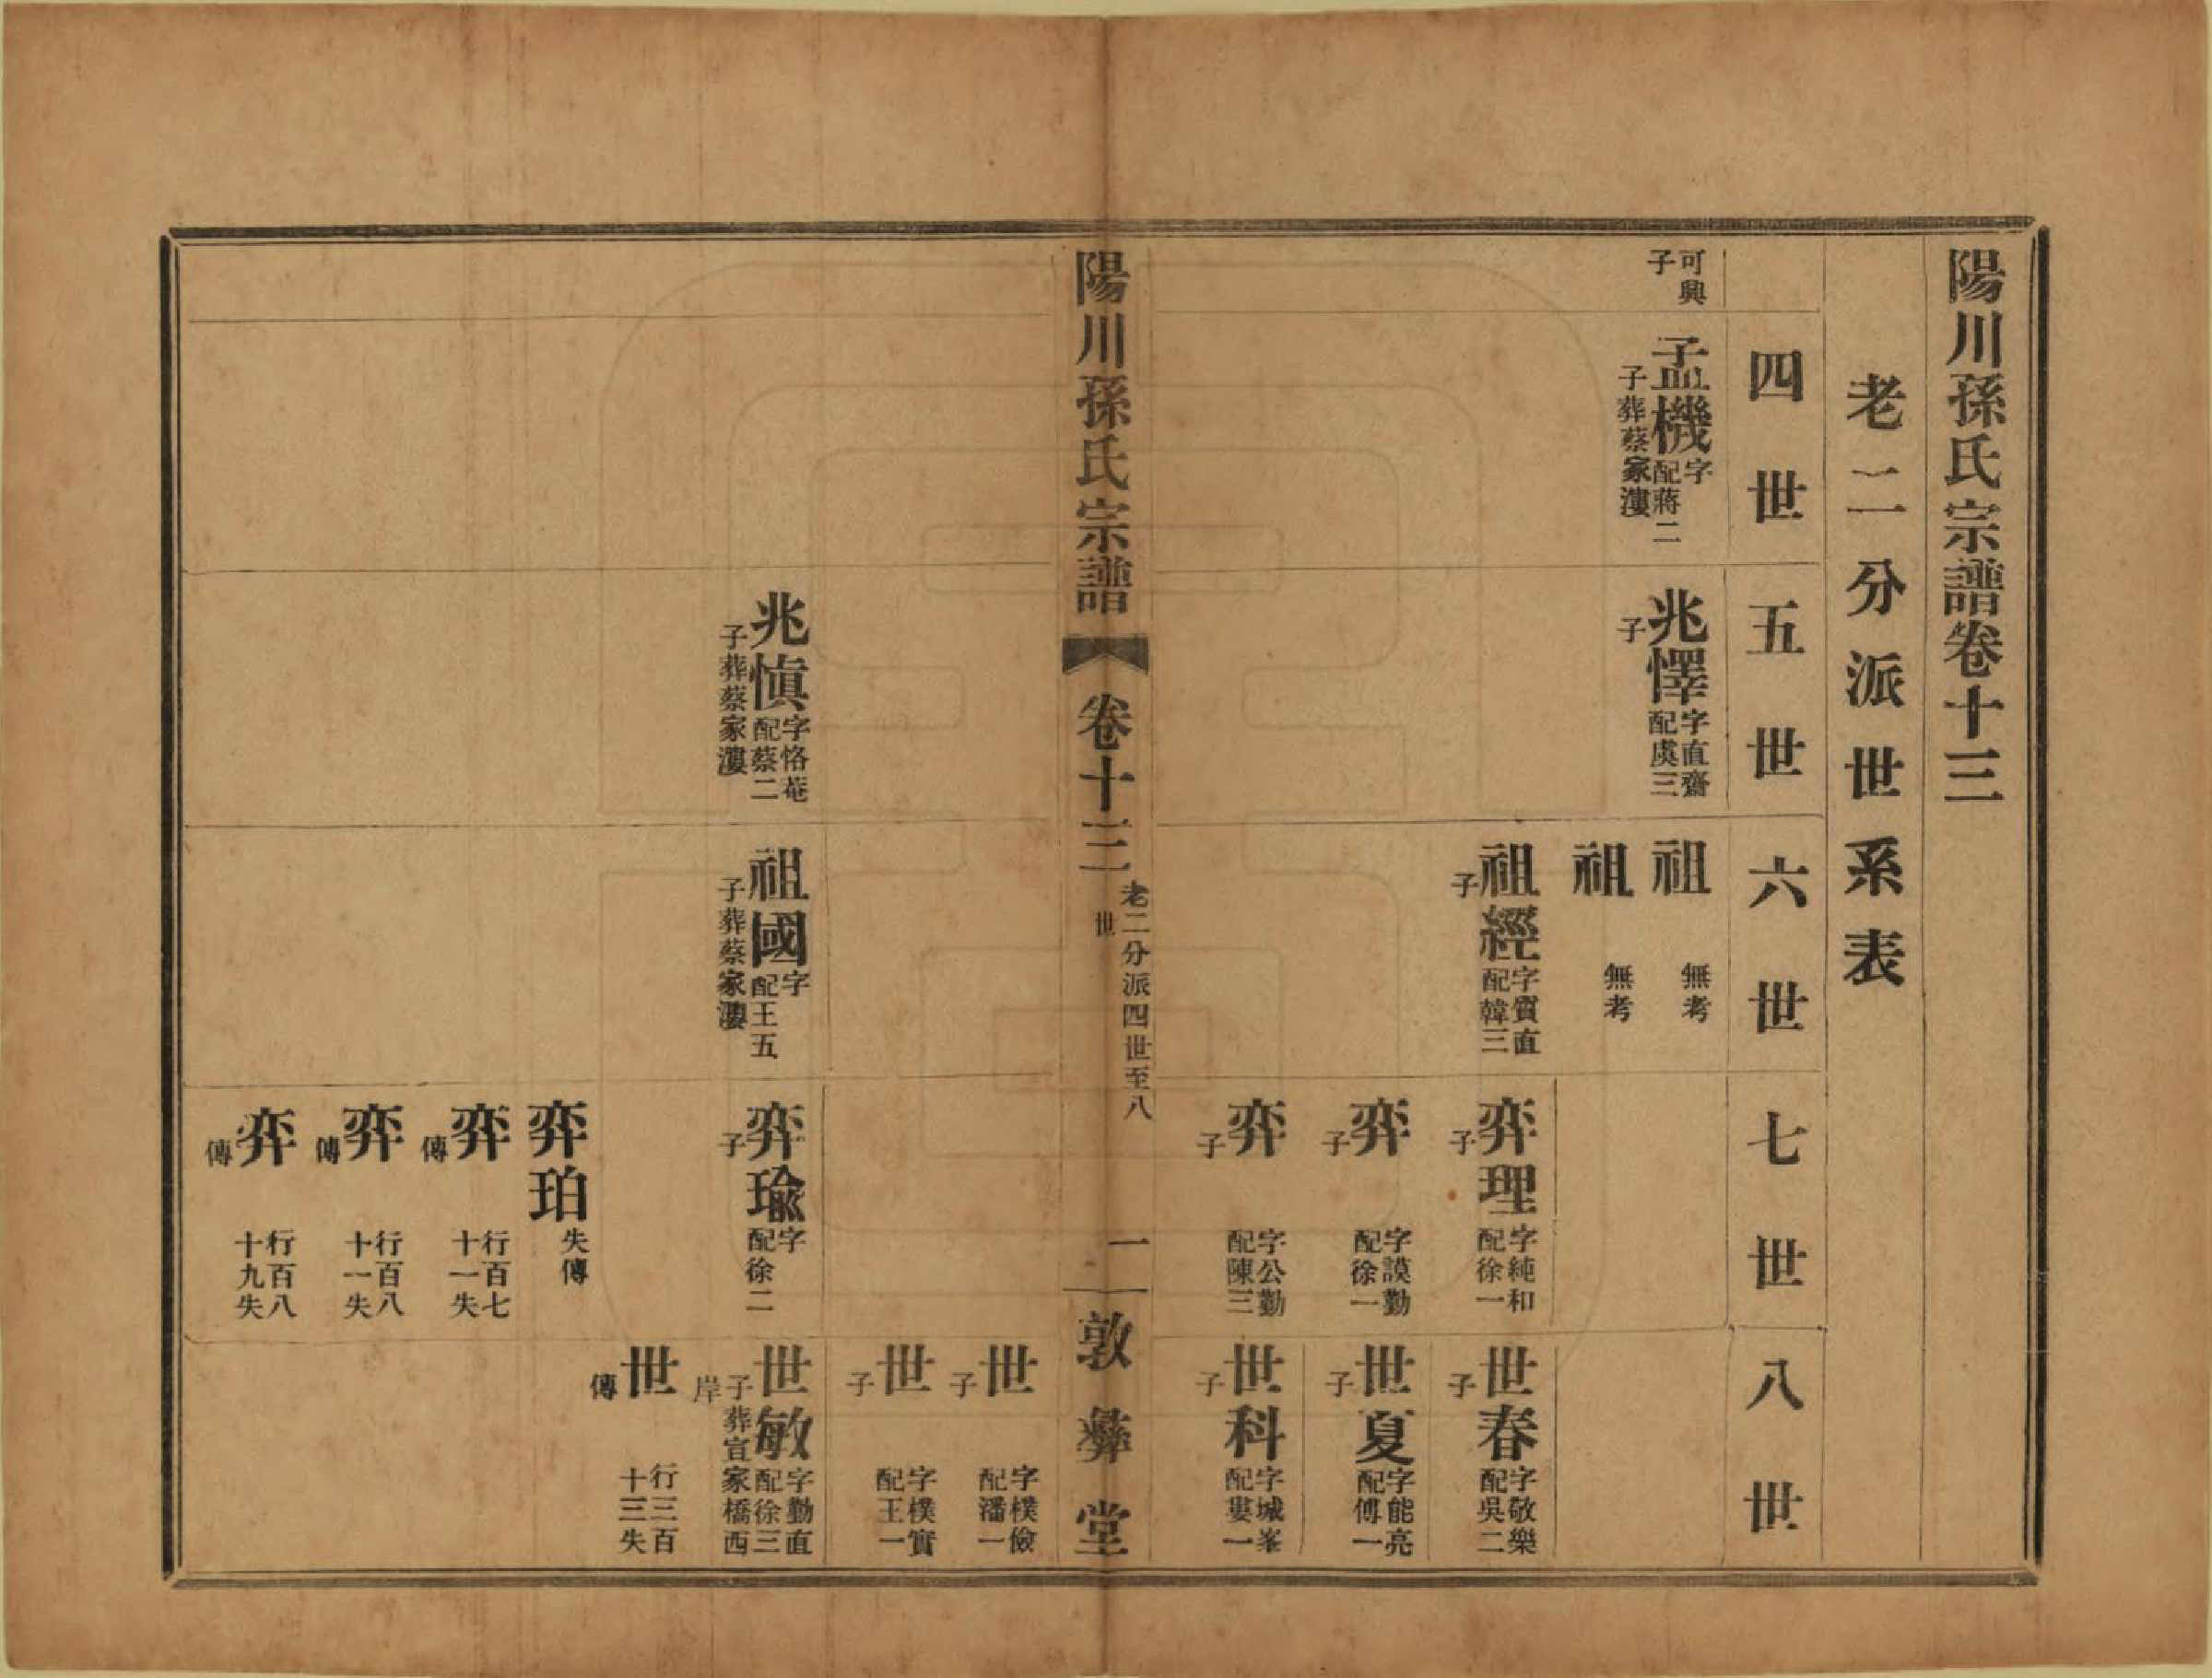 陽川孫氏宗譜卷十三
老二分派世系表
四世
五世
六世
七世
八世
可興
子
孟機 字
配蔣二
子葬蔡家漊
兆懌 字直齋
配虞三
子
祖 無考
祖 無考
祖經 字質直
配韓三
子
弈理 字純和
配徐一
子
弈 字謨勤
配徐一
子
弈 字公勤
配陳三
子
世春 字敬樂
配吳二
子
世夏 字能亮
配傅一
子
世科 字城峯
配婁一
子
陽川孫氏宗譜 卷十三
老二分派四世至八
世
一
敦彝堂
世 字樸儉
配潘一
子
世 字樸實
配王一
子
兆愼 字恪菴
配蔡二
子葬蔡家漊
祖國 字
配王五
子葬蔡家漊
弈瑜 字
配徐二
子
世敏 字勤直
配徐三
子葬宣家橋西
岸
世 行三百
十三失
傳
弈珀 失傳
弈 行百七
十一失
傳
弈 行百八
十一失
傳
弈 行百八
十九失
傳